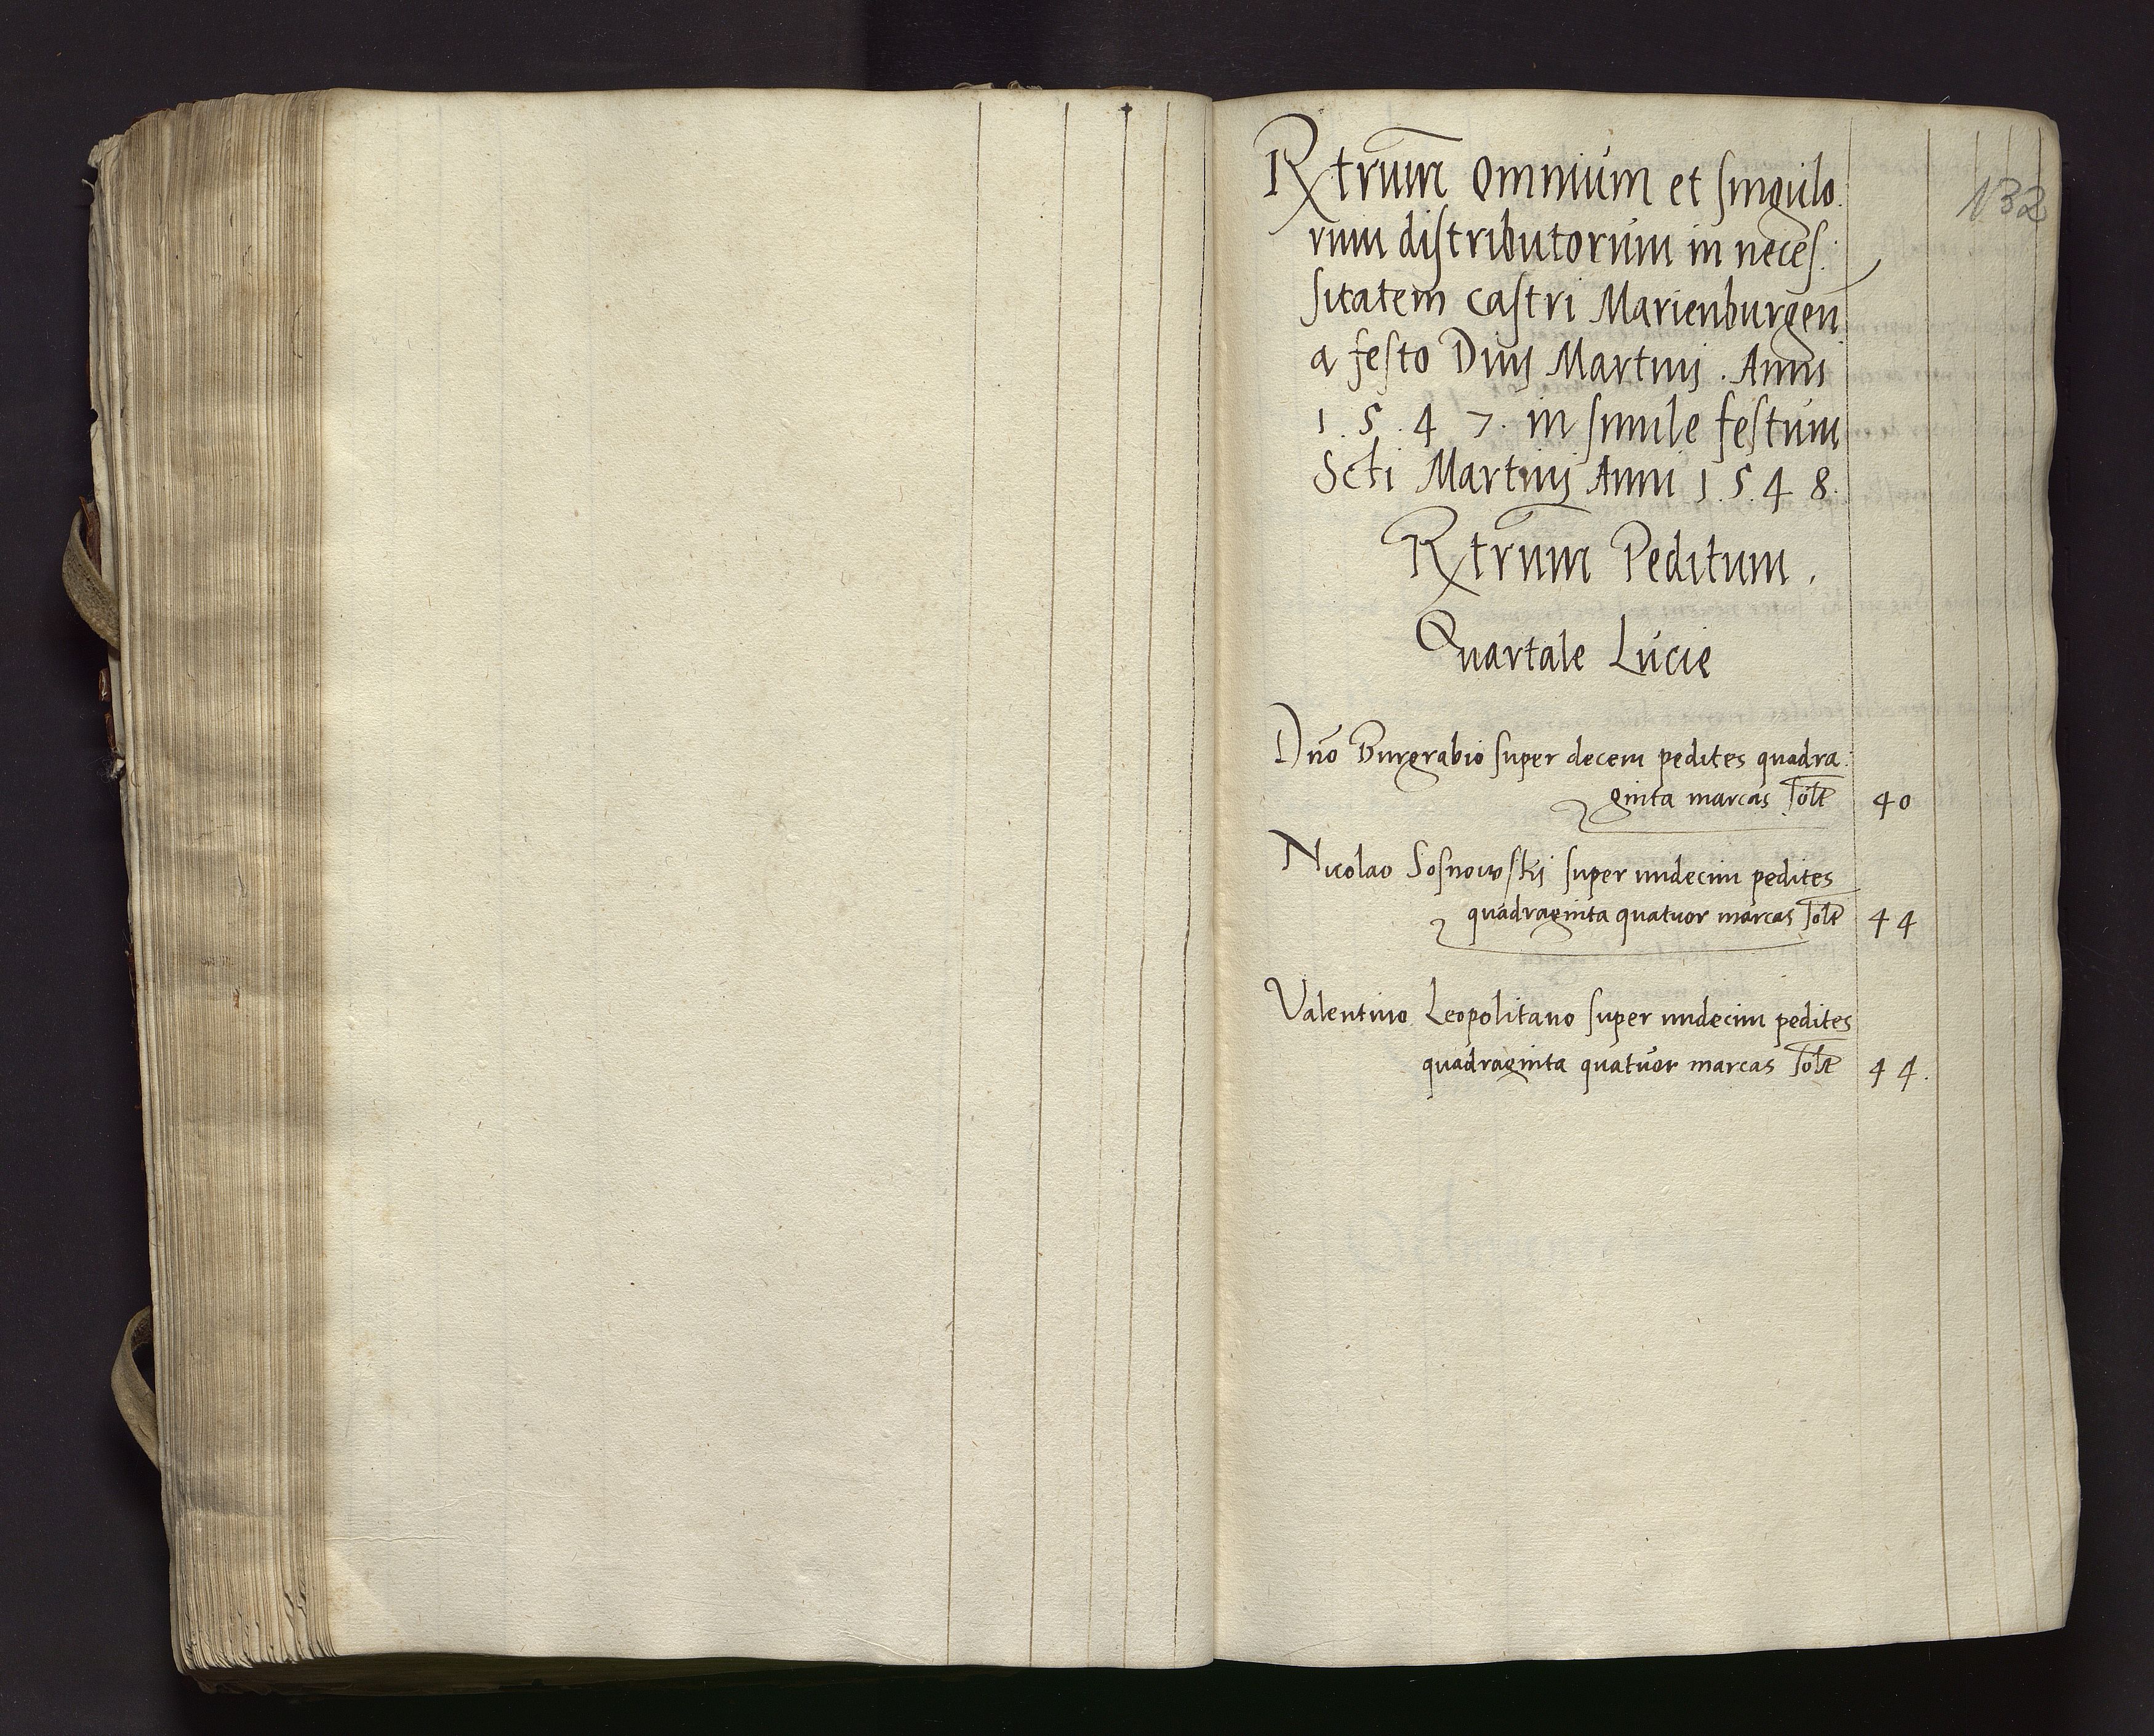 132
Rtrum Omnium et singulo.
rum distributorum in neces.
sitatem castri Marienburgen
a festo Divj Martinj . Anni
1 . 5 . 4 7 . in simile festum
Scti Martinj Anni 1 . 5 . 4 8 .
Rtrum Peditum .
Quartale Lucie
Dno Burgrabio super decem pedites quadra.
ginta marcas Solt 40
Nicolao Sosnowskj super undecim pedites
quadraginta quatuor marcas Solt 44
Valentino Leopolitano super undecim pedites
quadraginta quatuor marcas Solt 44.